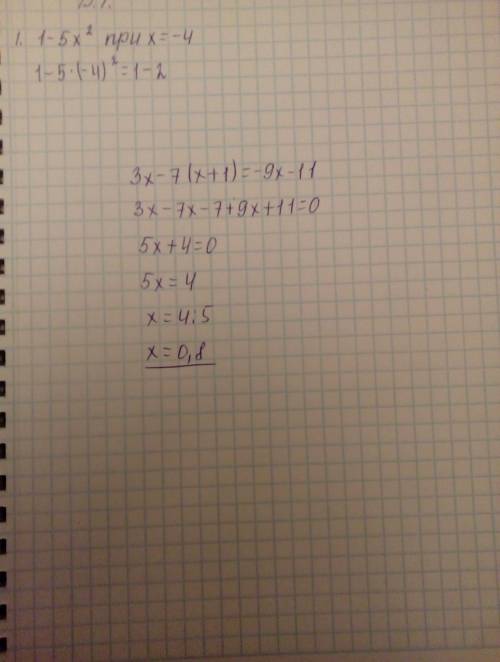 1. 1-5x² при x=-4
1-5·(-4)²=1-2
3x-7(x+1)=-9x-11
3x-7x-7+9x+11=0
5x+4=0
5x=4
x=4:5
x=0,8